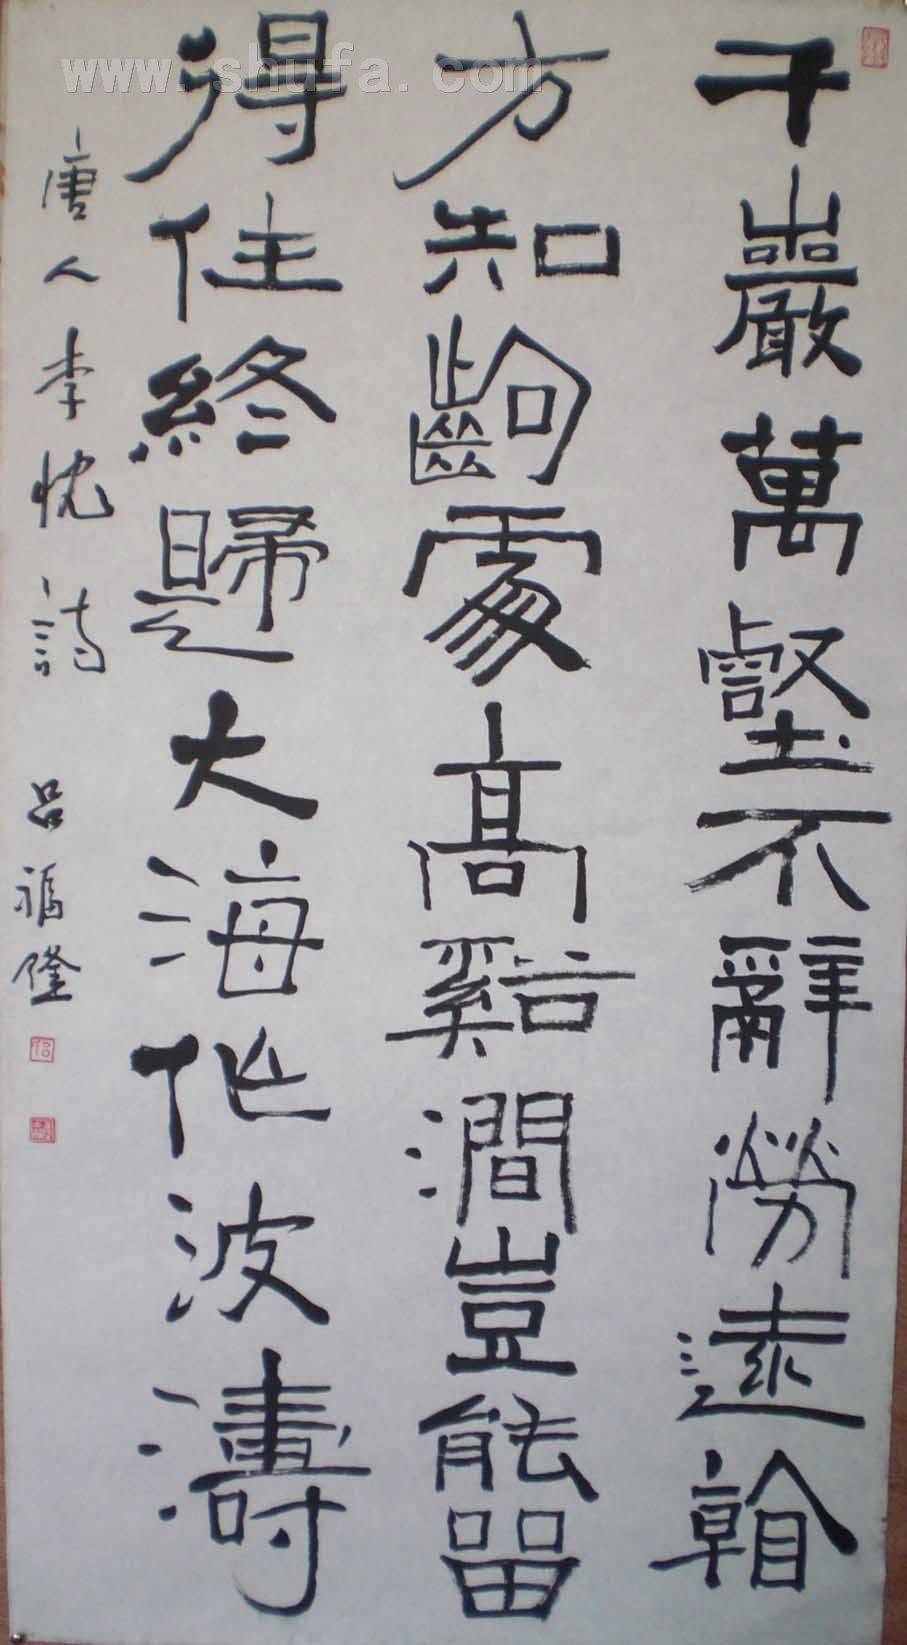 千巖萬壑不辭勞遠看
方知齣處高谿澗豈能留
得住終歸大海作波濤
唐人李忱詩 呂福隆
www.shufa.com